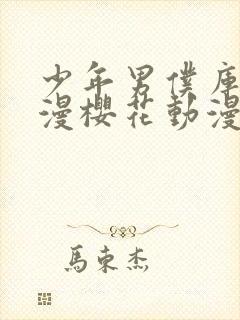 少年男僕庫
漫櫻花動漫
馬東杰